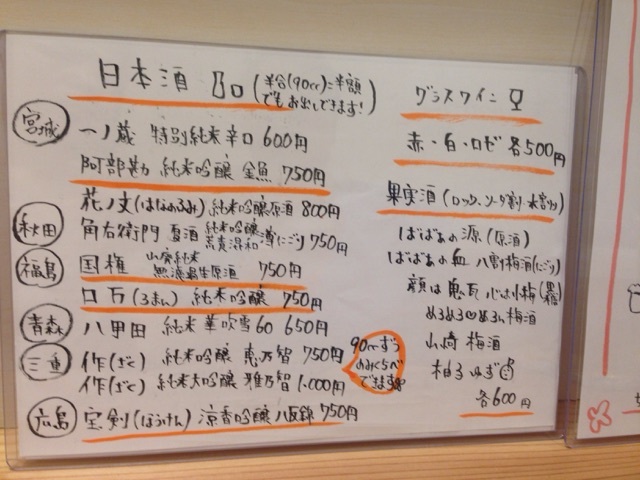 日本酒
(半合(90cc)=半額
でもお出しできます!)
宮城
一ノ蔵 特別純米辛口 600円
阿部勘 純米吟醸 金魚 750円
花ノ文(はなのふみ) 純米吟醸原酒 800円
秋田
角右衛門 夏酒 純米吟醸 750円
福島
国権 山廃純米
無濾過生原酒 750円
ロ万(ろまん) 純米吟醸 750円
青森
八甲田 純米 華吹雪60 650円
三重
作(ざく) 純米吟醸 恵乃智 750円
作(ざく) 純米大吟醸 雅乃智 1,000円
90ccずつ
のみくらべ
できます
広島
宝剣(ほうけん) 涼香吟醸 八反錦 750円
グラスワイン
赤・白・ロゼ 各500円
果実酒(ロック、ソーダ割・水割り)
ばばあの源(原酒)
ばばあの血 八割梅酒(にごり)
顔は恵瓦 心は小梅
山崎 梅酒
柚子 ゆず
各600円